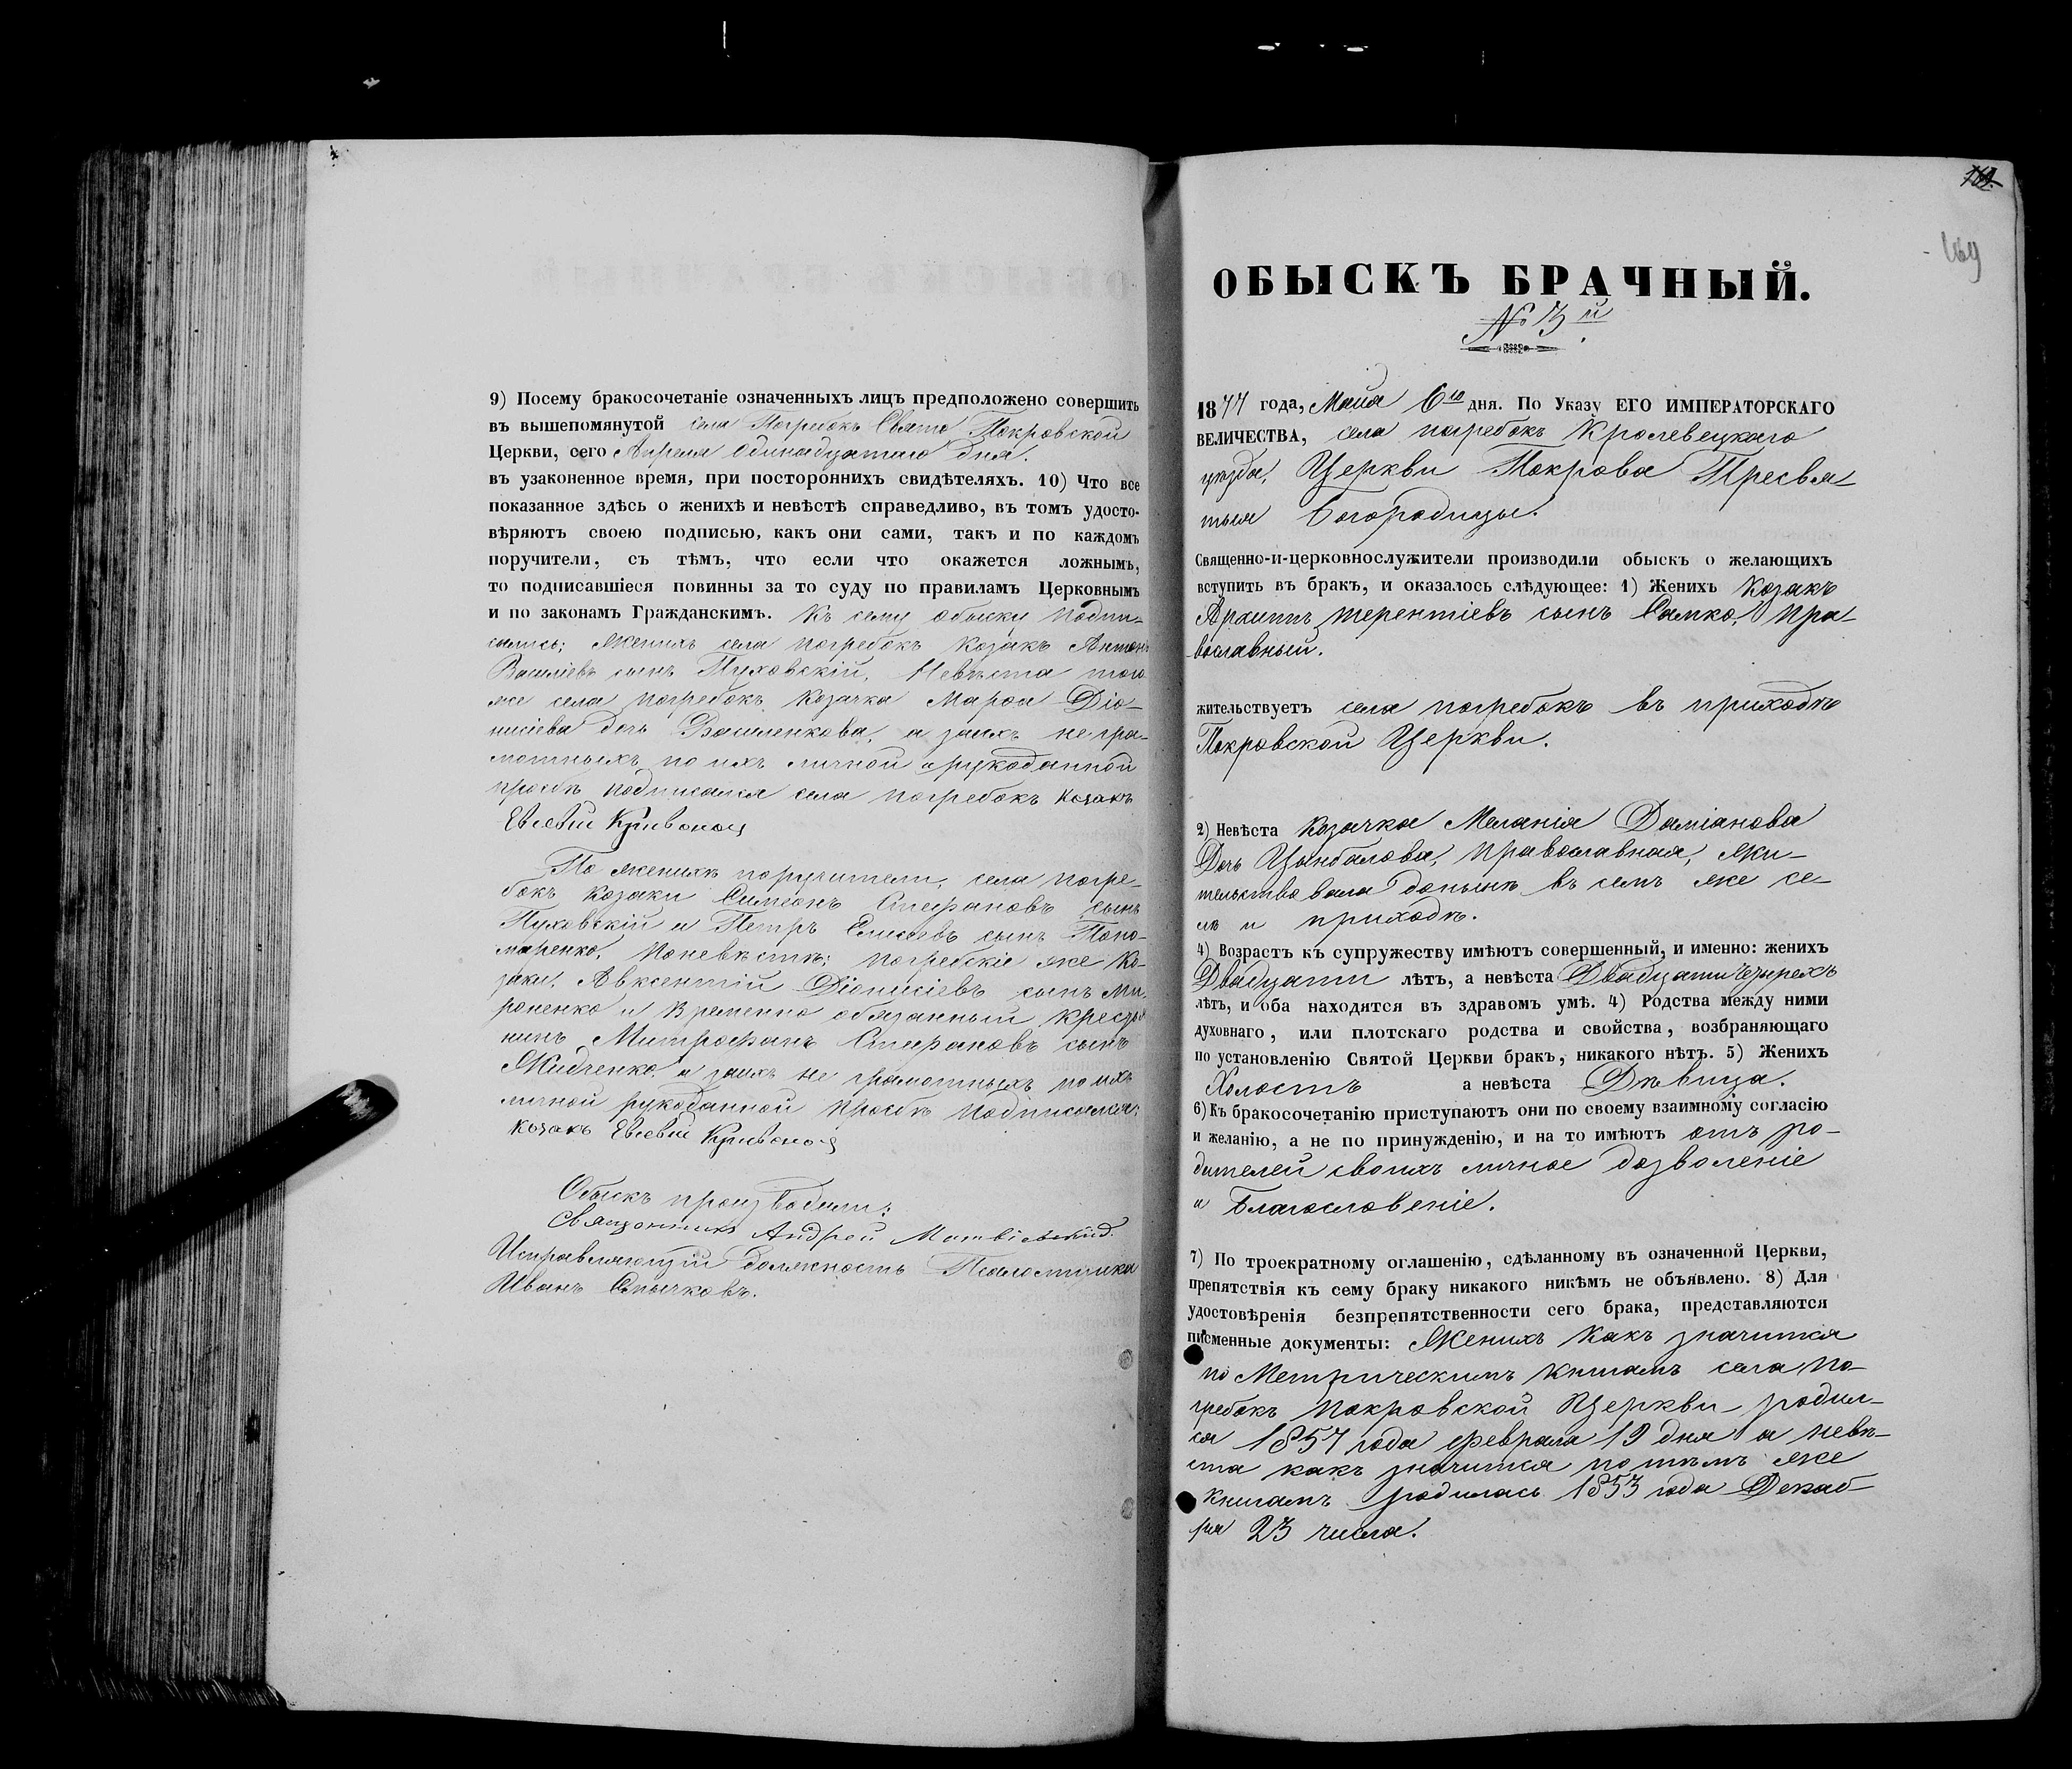 9) Посему бракосочетаніе означенныхъ лицъ предположено совершить
въ вышепомянутой села Погребокъ Свято Покровской
Церкви, сего Апреля Одинадцатаго дня.
въ узаконенное время, при постороннихъ свидѣтеляхъ. 10) Что все
показанное здѣсь о женихѣ и невѣстѣ справедливо, въ томъ удосто-
вѣряютъ своею подписью, какъ они сами, такъ и по каждомъ
поручители, съ тѣмъ, что если что окажется ложнымъ,
то подписавшіеся повинны за то суду по правиламъ Церковнымъ
и по законамъ Гражданскимъ. Къ сему обыску подпи-
сались; Женихъ села погребокъ козакъ Антонъ
Василіевъ сынъ Пуховскій, Невѣста того
же села погребокъ козачка Марѳа Діо-
нисіева дочь Василенкова, а заихъ негра-
мотныхъ по ихъ личной и рукоданной
прозбѣ подписался села погребокъ козакъ
Евсевій Кривонос
По женихѣ поручители, села погре-
бокъ козаки Симеонъ Стефановъ сынъ
Пуховскій и Петръ Елисеевъ сынъ Поно-
маренко, Поневѣстѣ; погребскіе же ко-
заки, Авксентій Діонисіевъ сынъ Ми-
роненко и Временно обязанный крестья
нинъ Митрофанъ Стефановъ сынъ
Жидченко, а заихъ не грамотныхъ по ихъ
личной рукоданной прозбѣ подписался;
козакъ Евсевій Кривонос
Обыскъ производили:
Священникъ Андрей
Исправляющій должность Псаломщика
Иванъ Смычковъ.
169
ОБЫСКЪ БРАЧНЫЙ.
№ 3й
1877 года, Майя 6го дня. По Указу ЕГО ИМПЕРАТОРСКАГО
ВЕЛИЧЕСТВА, села погребокъ Кролевецкаго
уѣзда, Церкви Покрова Пресвя-
тыя Богородицы.
Священно-и-церковнослужители производили обыскъ о желающихъ
вступить въ бракъ, и оказалось слѣдующее: 1) Женихъ Козакъ
Архипъ терентіевъ сынъ Самко, Пра-
вославный.
жительствуетъ села погребокъ въ приходѣ
Покровской Церкви.
2) Невѣста Козачка Меланія Даміанова
Дочь Цынбалова, православная, жи-
тельствовала донынѣ въ семъ же се-
лѣ и приходѣ.
4) Возрастъ къ супружеству имѣютъ совершенный, и именно: женихъ
Двадцати лѣтъ, а невѣста Двадцатичтырехъ
лѣтъ, и оба находятся въ здравомъ умѣ. 4) Родства между ними
духовнаго, или плотскаго родства и свойства, возбраняющаго
по установленію Святой Церкви бракъ, никакого нѣтъ. 5) Женихъ
Холостъ а невѣста Дѣвица.
6) Къ бракосочетанію приступаютъ они по своему взаимному согласію
и желанію, а не по принужденію, и на то имѣютъ отъ ро-
дителей своихъ личное дозволеніе
и Благословеніе.
7) По троекратному оглашенію, сдѣланному въ означенной Церкви,
препятствія къ сему браку никакого никѣмъ не объявлено. 8) Для
удостовѣренія безпрепятственности сего брака, представляются
писменные документы: Женихъ какъ значится
по Метрическимъ книгамъ села по-
гребокъ покровской Церкви родил-
ся 1857 года февраля 19 дня а невѣ-
ста какъ значится по тѣмъ же
книгамъ родилась 1853 года Декаб-
ря 23 числа.